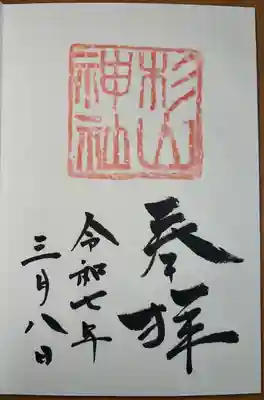 杉山
神社
奉拝
令和七年
三月八日